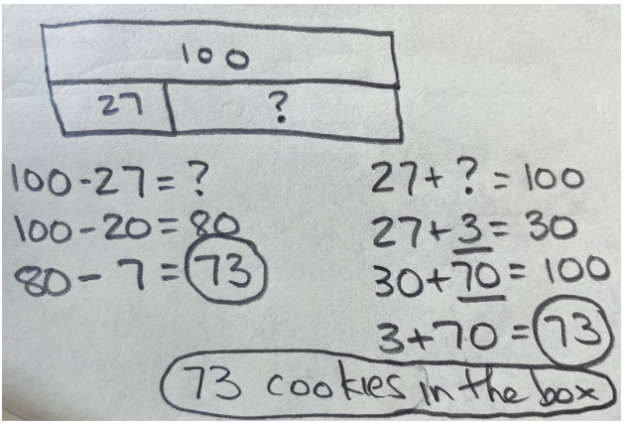 100
27 ?
100-27=?
100-20=80
80-7=73
27+?=100
27+3=30
30+70=100
3+70=73
73 cookies in the box